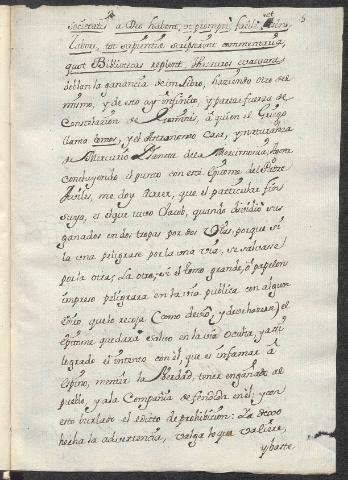 societate à Deo habent, ut promptè, facilè, et
labore, tot sapientiæ scripserint commentaria,
quot Bibliotecas replent, Thesauros
doblon la ganancia de un Libro, haziendo otro del
mismo, y de esto ay infinito, y parece fuerza de
Constelacion de, à quien el Griego
llama tomos, y el Astronomo Casa, y naturaleza
de Mercurio Planeta de la Mercimonia; Ahora
concluyendo el punto con este Epitome del Padre
Aviles, me doy à creer, que el particular fin
suyo, es el que tuvo Jacob, quando dividiò sus
ganados en dos tropas por dos Vias, porque si
la una peligrase por la una via, se salvase
por la otra; La otra; si el tomo grande, ò papelon
impreso peligrara en la via publica con algun
Edicto, que lo recoja (como deviò, y deve hazerse) el
epitome quedarà salvo en la via oculta, y asi
logrado el intento con èl, que es infamar à
Espino, mentir la Verdad, tener engañado al
pueblo, y à la Compañia defendida en èl; y con
esto burlado el edicto de prohibicion: Ya dexo
hecha la advertencia, valga lo que valiere,
y baste